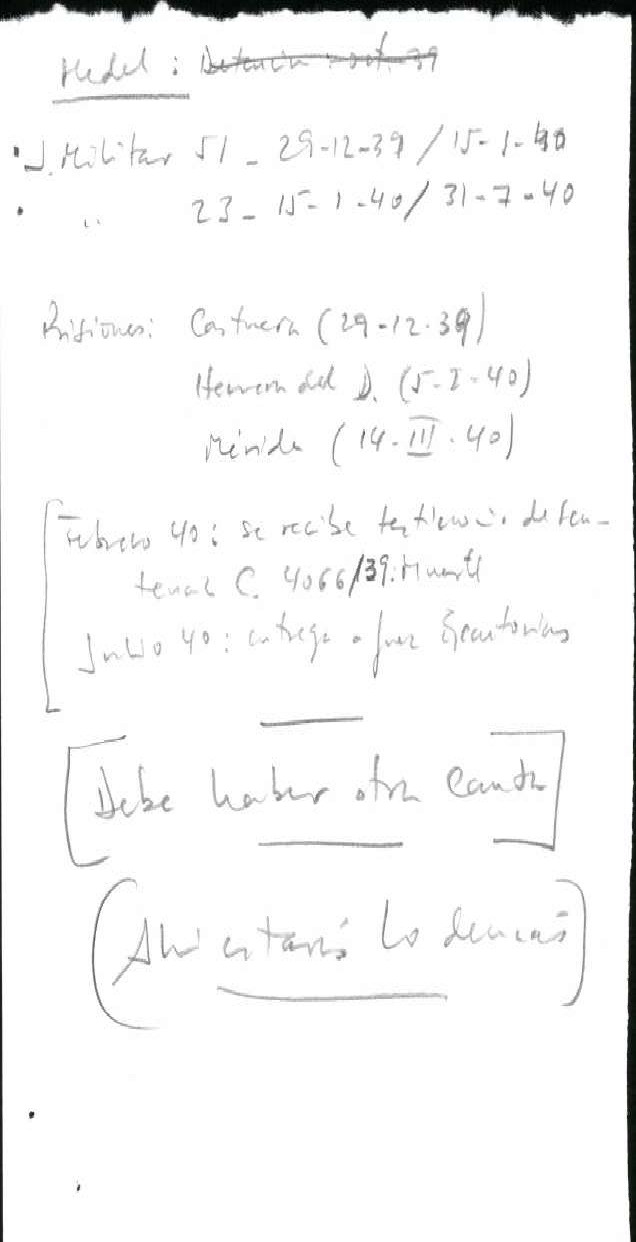 Medel: Detención: oct. 39
J. Militar 51 - 29-12-39 / 15-1-40
" 23 - 15-1-40 / 31-7-40
Prisiones: Castuera (29-12-39)
Herrera del D. (5-2-40)
Mérida (14-III-40)
Febrero 40: se recibe testimonio de sen-
tencia C. 4066/39: Muerte
Julio 40: entrega a Juez Ejecutorias
Debe haber otra causa
Ahí estará lo demás